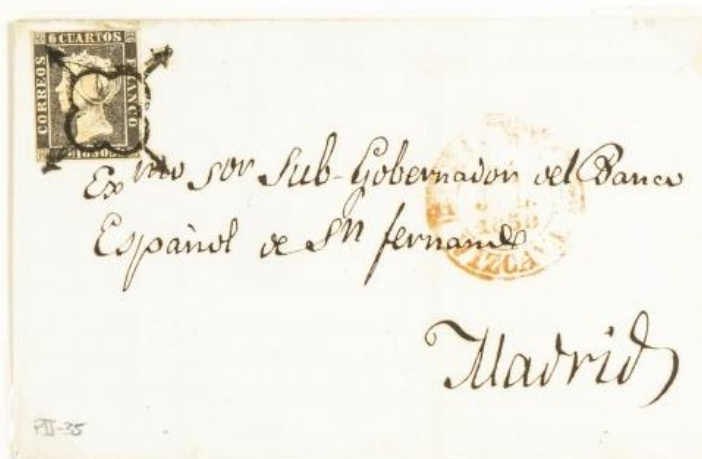 6 CUARTOS
CORREOS
FRANCO
1850
Exmo Sor Sub-Gobernador del Banco
Español de Sn fernando
1850
VIZCAYA
Madrid
PII-35